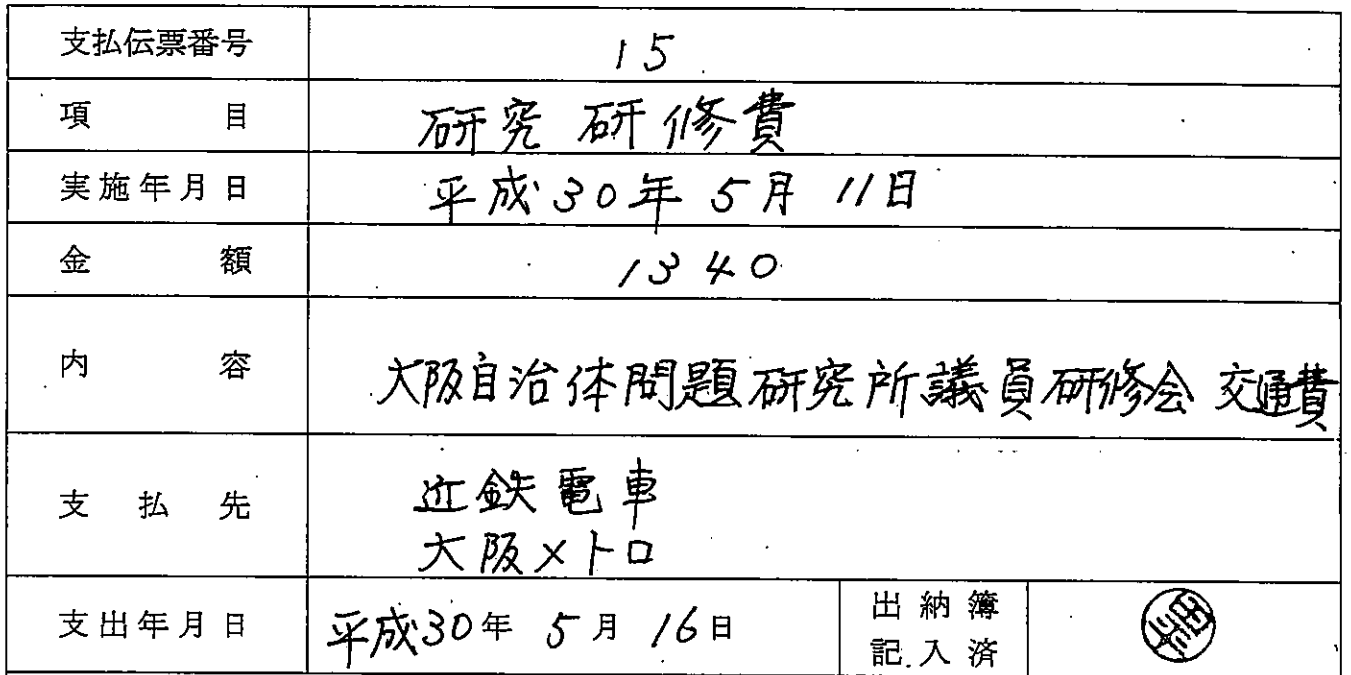 支払伝票番号 15
項目 研究研修費
実施年月日 平成30年5月11日
金額 1340
内容 大阪自治体問題研究所議員研修会 交通費
支払先 近鉄電車
大阪メトロ
支出年月日 平成30年5月16日 出納簿
記入済